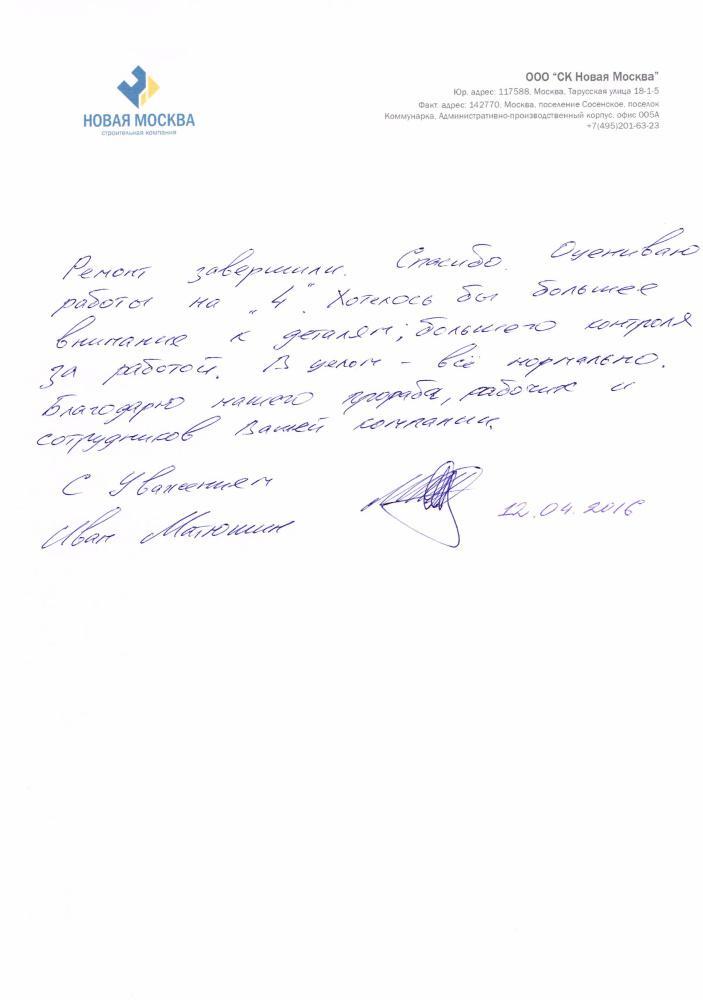 НОВАЯ МОСКВА
строительная компания
ООО "СК Новая Москва"
Юр. адрес: 117588, Москва, Тарусская улица 18-1-5
Факт. адрес: 142770, Москва, поселение Сосенское, поселок
Коммунарка, Административно-производственный корпус, офис 005А
+7(495)201-63-23
Ремонт завершили. Спасибо. Оцениваю
работы на „4". Хотелось бы большее
внимание к деталям; большего контроля
за работой. В целом - всё нормально.
Благодарю нашего прораба, рабочих и
сотрудников Вашей компании.
С Уважением
Иван Матюшин
12.04.2016